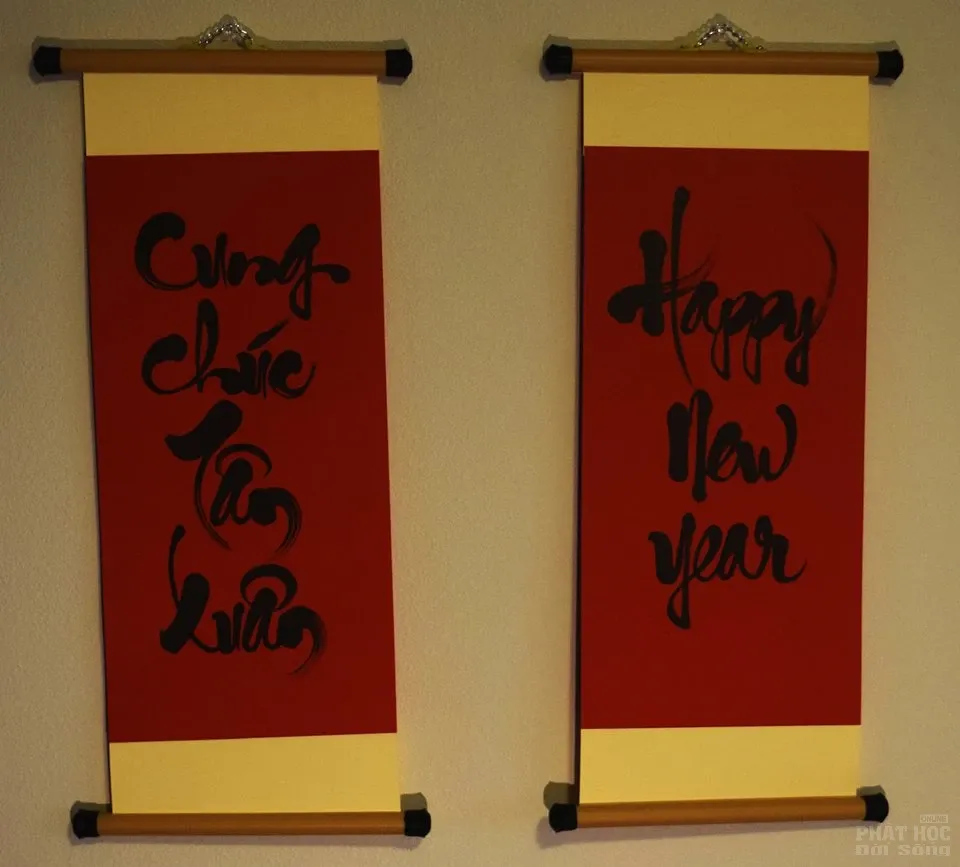 Cung
chúc
Tân
Xuân
Happy
New
year
ONLINE
PHẬT HỌC
Đời Sống